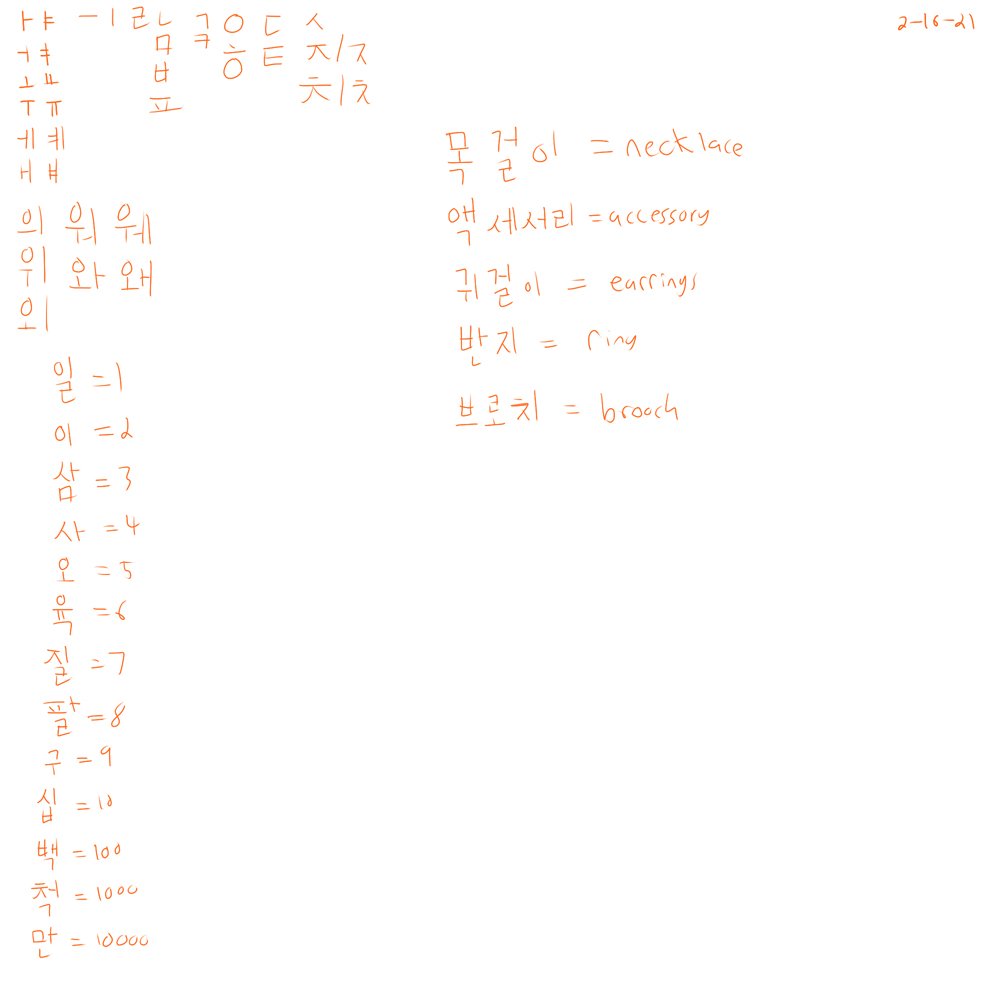 ㅏ ㅑ ㅡ ㅣ ㄹ ㄴ ㄱ ㅇ ㄷ ㅅ
2-16-21
ㅓ ㅕ ㅁ ㅋ ㅎ ㅌ ㅈ/ㅈ
ㅗ ㅛ ㅂ ㅊ/ㅊ
ㅜ ㅠ ㅍ
ㅔ ㅖ
ㅐ ㅒ
의 워 웨
위 와 왜
외
일 = 1
이 = 2
삼 = 3
사 = 4
오 = 5
육 = 6
질 = 7
팔 = 8
구 = 9
십 = 10
백 = 100
척 = 1000
만 = 10000
목걸이 = necklace
액세서리 = accessory
귀걸이 = earrings
반지 = ring
브로치 = brooch